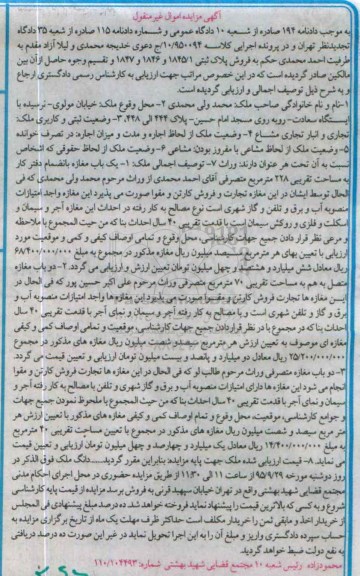 آگهی مزایده اموال غیرمنقول
به موجب دادنامه ۱۹۴ صادره از شعبه ۱۰ دادگاه عمومی و شماره دادنامه ۱۱۵ صادره از شعبه ۳۵ دادگاه
تجدیدنظر تهران و در پرونده اجرایی کلاسه ۱۰/۹۵۰۰۹۴ج دعوی خدیجه محمدی و لیلا آزاد مقدم به
طرفیت احمد محمدی حکم به فروش پلاک ثبتی ۱۸۴۵/۱ و ۱۸۴۶ و ۱۸۴۷ و تقسیم وجوه حاصل از آن بین
مالکین صادر گردیده است که در این خصوص مراتب جهت ارزیابی به کارشناس رسمی دادگستری ارجاع
و به شرح ذیل توصیف اجمالی و ارزیابی گردیده است.
۱-نام و نام خانوادگی صاحب ملک: محمد ولی محمدی ۲- محل وقوع ملک: خیابان مولوی- نرسیده با
ایستگاه سعادت- روبه روی مسجد امام حسین- پلاک ۲۴۴ الی ۲۴۸. ۳- وضعیت ثبتی و کاربری ملک:
تجاری و انبار تجاری مشاع ۴- وضعیت ملک از لحاظ اجاره و مدت و میزان اجاره: در تصرف خوانده
۵- وضعیت ملک از لحاظ مشاعی یا مفروز بودن: مشاعی ۶- وضعیت ملک از لحاظ حقوقی که اشخاص
نسبت به آن تحت هر عنوان دارند: وراث ۷- توصیف اجمالی ملک: ۱- یک باب مغازه بانضمام دفتر کار
به مساحت تقریبی ۲۲۸ مترمربع متصرفی آقای احمد محمدی از وراث مرحوم محمد ولی محمدی که فی
الحال توسط ایشان در این مغازه تجارت و فروش کارتن و مقوا صورت می پذیرد این مغازه واجد امتیازات
منصوبه آب و برق و تلفن و گاز شهری است نوع مصالح به کار رفته در احداث این مغازه آجر و سیمان و
اسکلت و فلزی و روکش سیمان است با قدمت تقریبی ۴۰ سال احداث بنا که من حیث المجموع با ملاحظه
و مرعی نظر قرار دادن جمیع جهات کارشناسی، محل وقوع و تمامی اوصاف کیفی و کمی و موقعیت مورد
ارزیابی با تعیین بهای هر مترمربع سیصد میلیون ریال مغازه مذکور در مجموع به مبلغ ۶۸/۴۰۰/۰۰۰/۰۰۰
ریال معادل شش میلیارد و هشتصد و چهل میلیون تومان تعیین ارزش و ارزیابی می گردد ۲- دو باب مغازه
متصل به هم به مساحت تقریبی ۷۰ مترمربع متصرفی وراث مرحوم علی اکبر حسین پور که فی الحال در
این مغازه ها تجارت فروش کارتن و مقوا صورت می پذیرد این مغازه ها واجد امتیازات منصوبه آب و
برق و گاز و تلفن شهری است و با مصالح به کار رفته آجر و سیمان و نمای آجر با قدمت تقریبی ۴۰ سال
احداث بنا که در مجموع با در نظر قراردادن جمیع جهات کارشناسی، موقعیت و تمامی اوصاف کمی و کیفی
مغازه ای موصوف به تعیین ارزش هر مترمربع سیصد و شصت میلیون ریال مغازه های مذکور در مجموع
۲۵/۲۰۰/۰۰۰/۰۰۰ ریال معادل دو میلیارد و پانصد و بیست میلیون تومان ارزیابی و تعیین قیمت می گردد.
۳- دو باب مغازه متصرفی وراث مرحوم طالب لو که فی الحال در این مغازه ها تجارت فروش کارتن و مقوا
انجام می شود این مغازه ها دارای امتیازات منصوبه آب و برق و گاز شهری و تلفن با مصالح به کار رفته آجر و
سیمان و نمای آجر با قدمت تقریبی ۴۰ سال احداث بنا که من حیث المجموع با ملحوظ نمودن جمیع جهات
و جوامع کارشناسی، موقعیت، محل وقوع و تمام اوصاف کمی و کیفی مغازه های مذکور با تعیین ارزش هر
متر مربع سیصد و شصت میلیون ریال مغازه های مذکور در مجموع با تعیین مساحت تقریبی ۴۰ مترمربع
به مبلغ ۱۴/۴۰۰/۰۰۰/۰۰۰ ریال معادل یک میلیارد و چهارصد و چهل میلیون تومان ارزیابی و تعیین قیمت
می نماید. ۸- قیمت ارزیابی شده ملک جهت پایه مزایده: بنابراین مقرر گردید......دانگ ملک فوق الذکر در
روز دوشنبه مورخه ۹۵/۹/۲۹ از ساعت ۱۱ الی ۱۱:۳۰ از طریق مزایده حضوری در محل اجرای احکام مدنی
مجتمع قضایی شهید بهشتی واقع در تهران خیابان سپهبد قرنی به فروش برسد مزایده از قیمت پایه کارشناسی
شروع و به کسی که بالاترین قیمت را پیشنهاد نماید فروخته خواهد شد. ده درصد مبلغ پیشنهادی فی المجلس
از خریدار اخذ و مابقی ثمن را خریدار مکلف است حداکثر ظرف مهلت یک ماه از تاریخ برگزاری مزایده به
حساب سپرده دادگستری واریز و مبلغ آن را به این اجرا تحویل نماید در غیر این صورت ده درصد دریافتی
به نفع دولت ضبط خواهد گردید.
محمودزاده رئیس شعبه ۱۰ مجتمع قضایی شهید بهشتی شماره: ۱۱۰/۱۰۲۴۹۳